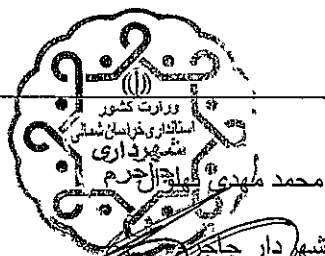 وزارت کشور
استانداری خراسان شمالی
شهرداری
جاجرم
محمد مهدی
شهردار جاجرم